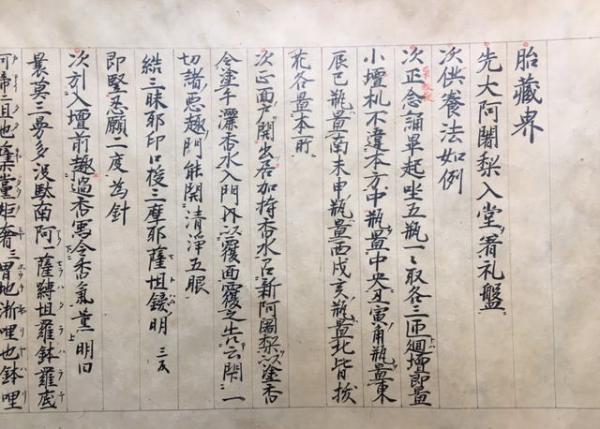 胎藏界
先大阿闍梨入堂着礼盤
次供養法如例
次正念誦畢起坐五瓶一々取各三匝廻壇即置
小壇机不違本方中瓶置中央丑寅角瓶置東
辰巳瓶置南未申瓶置西戌亥瓶置北皆挍
花各置本所
次正西戸開出各加持香水召新阿闍梨以塗香
令塗手灑香水入門外以覆面覆之
切諸惡趣門能開清淨五眼
結三昧耶印口授三摩耶薩怛鑁明 三反
即竪忍願二度為針
次引入壇前趣過香
曩莫三曼多没駄南阿薩縛怛羅鉢羅底